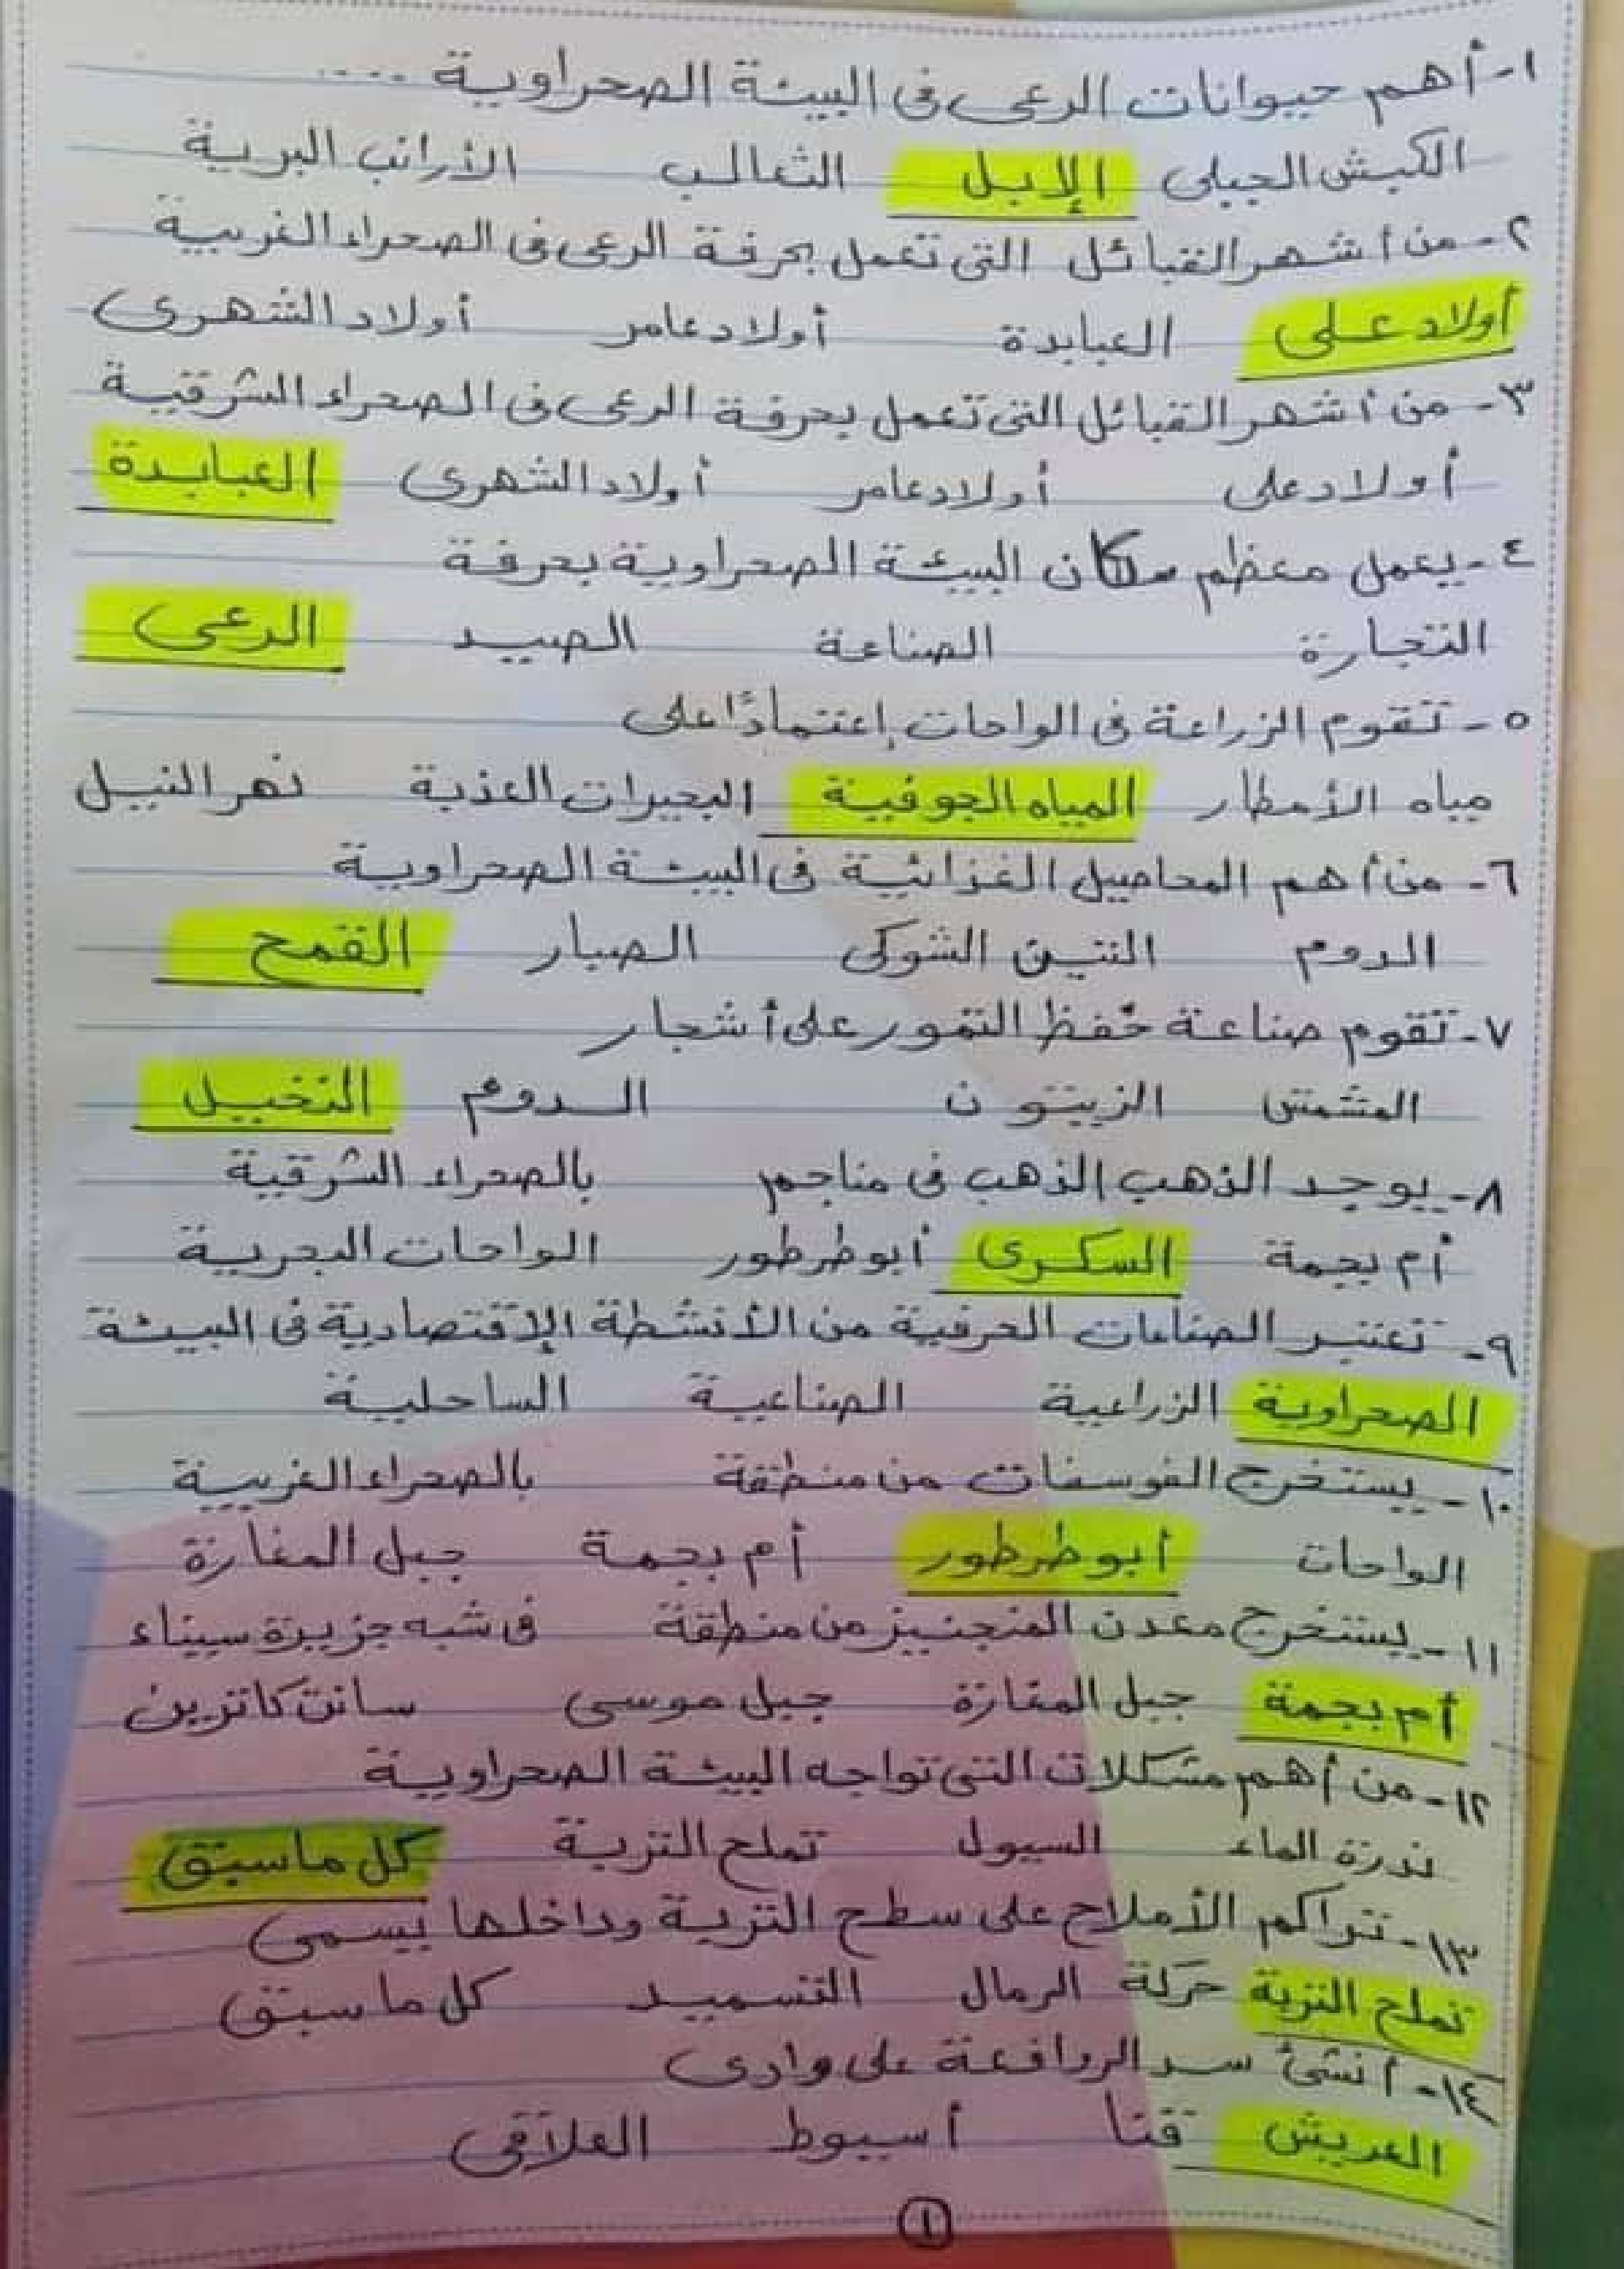 ١- أهم حيوانات الرعى فى البيئة الصحراوية .....
الكبش الجبلى الإبل الثعالب الأرانب البرية
٢- من أشهر القبائل التى تعمل بحرفة الرعى فى الصحراء الغربية
أولاد على العبابدة أولاد عامر أولاد الشهرى
٣- من أشهر القبائل التى تعمل بحرفة الرعى فى الصحراء الشرقية
أولاد على أولاد عامر أولاد الشهرى العبابدة
٤- يعمل معظم سكان البيئة الصحراوية بحرفة
التجارة الصناعة الصيد الرعى
٥- تقوم الزراعة فى الواحات إعتمادًا على
مياه الأمطار المياه الجوفية البحيرات العذبة نهر النيل
٦- من أهم المحاصيل الغزائية فى البيئة الصحراوية
الدوم التين الشوكى الصبار القمح
٧- تقوم صناعة حفظ التمور على أشجار
المشمش الزيتون الدوم النخيل
٨- يوجد الذهب الذهب فى مناجم بالصحراء الشرقية
أم بجمة السكرى أبوطرطور الواحات البحرية
٩- تعتبر الصناعات الحرفية من الأنشطة الإقتصادية فى البيئة
الصحراوية الزراعية الصناعية الساحلية
١٠- يستخرج الفوسفات من منطقة بالصحراء الغربية
الواحات أبوطرطور أم بجمة جبل المغارة
١١- يستخرج معدن المنجنيز من منطقة فى شبه جزيرة سيناء
أم بجمة جبل المغارة جبل موسى سانت كاترين
١٢- من أهم مشكلات التى تواجه البيئة الصحراوية
ندرة الماء السيول تملح التربة كل ماسبق
١٣- تراكم الأملاح على سطح التربة وداخلها يسمى
تملح التربة حركة الرمال التسميد كل ماسبق
١٤- أنشئ سد الروافعة على وادى
العريش قنا أسيوط العلاقى
١